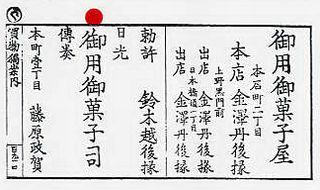 御用御菓子屋
本石町二丁目
本店 金澤丹後掾
上野黒門前
出店 金澤丹後掾
日本橋
出店 金澤丹後掾
勅許 鈴木越後掾
日光
御用御菓子司
傳奏
本町壹丁目 藤原政賀
買物獨案内